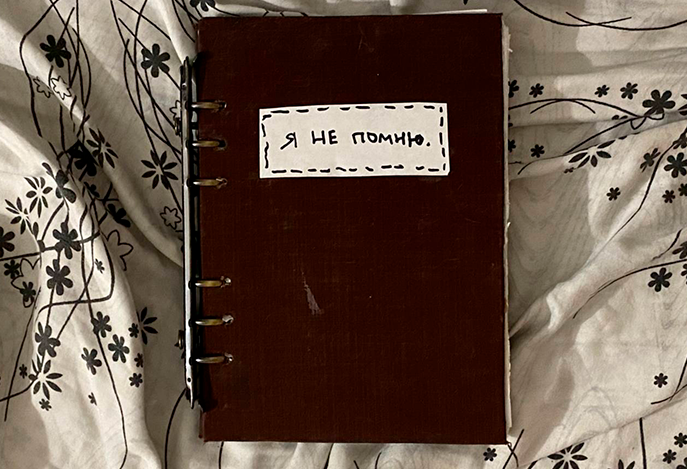 Я НЕ ПОМНЮ.